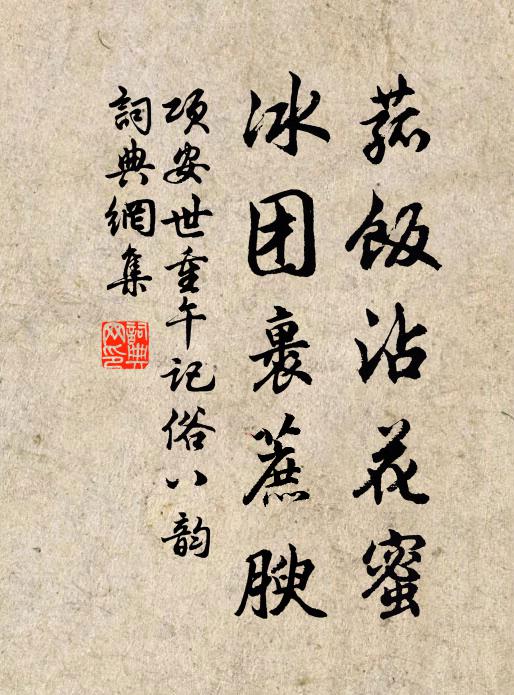 菰飯沾花蜜
冰团裹蔗腴
项安世重午记俗八韵
詞典網集
詞典网印